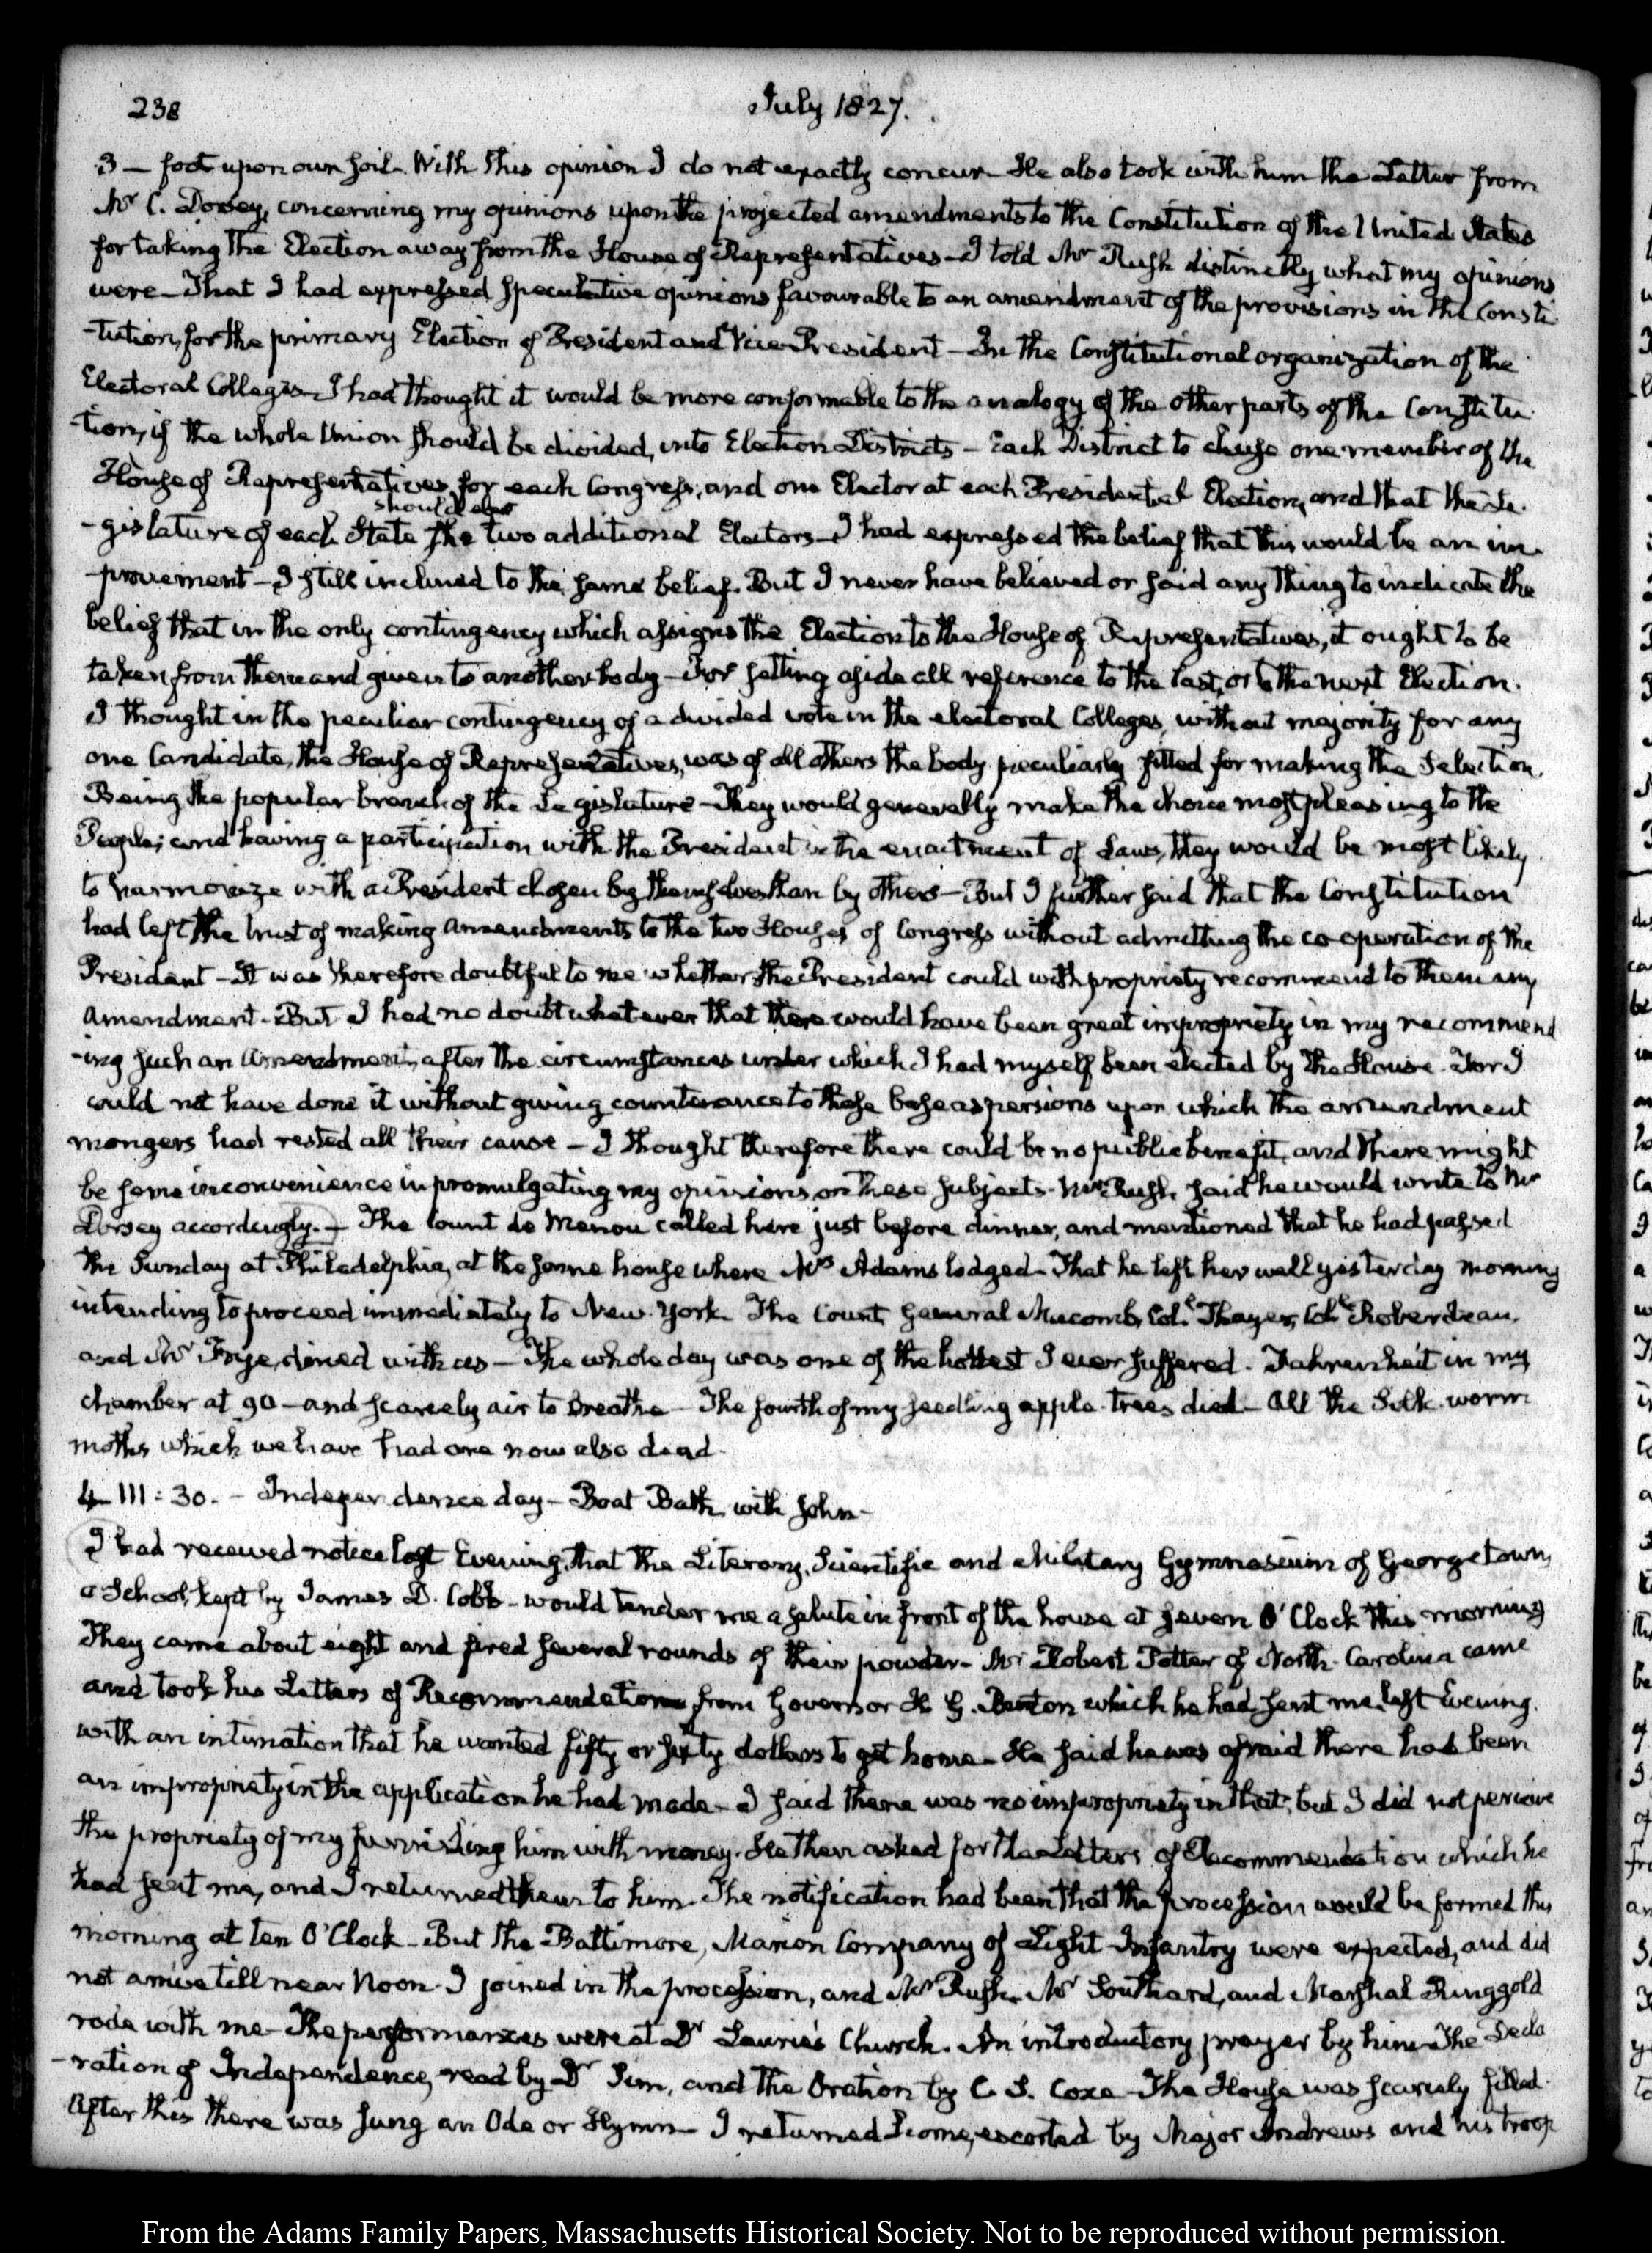 238
July 1827.
3 — foot upon our soil. With this opinion I do not exactly concur. He also took with him the Letter from
Mr C. Dorsey, concerning my opinions upon the projected amendments to the Constitution of the United States
for taking the Election away from the House of Representatives — I told Mr Rush distinctly what my opinions
were — That I had expressed speculative opinions favourable to an amendment of the provisions in the Consti
-tution, for the primary Election of President and Vice President — In the Constitutional organization of the
Electoral Colleges I had thought it would be more conformable to the analogy of the other parts of the Constitu-
-tion, if the whole Union should be divided, into Election Districts — Each District to chuse one member of the
House of Representatives for each Congress, and one Elector at each Presidential Election, and that the Le-
should
-gislature of each State the two additional Electors — I had expressed the belief that this would be an im-
-provement — I still inclined to the same belief. But I never have believed or said any thing to indicate the
belief that in the only contingency which assigns the Election to the House of Representatives, it ought to be
taken from them and given to another body — For setting aside all reference to the last, or to the next Election.
I thought in the peculiar contingency of a divided vote in the electoral Colleges, without majority for any
one Candidate, the House of Representatives, was of all others the body peculiarly fitted for making the Selection.
Being the popular branch of the Legislature — They would generally make the choice most pleasing to the
People; and having a participation with the President in the enactment of Laws, they would be most likely
to harmonize with a President chosen by themselves than by others — But I further said that the Constitution
had left the trust of making amendments to the two Houses of Congress without admitting the co-operation of the
President — It was therefore doubtful to me whether the President could with propriety recommend to them any
amendment. But I had no doubt whatever that there would have been great impropriety in my recommend
-ing such an amendment, after the circumstances under which I had myself been elected by the House. For I
could not have done it without giving countenance to those base aspersions upon which the amendment
mongers had rested all their cause — I thought therefore there could be no public benefit, and there might
be some inconvenience in promulgating my opinions on these subjects. Mr Rush said he would write to Mr
Dorsey accordingly. — The Count de Menou called here just before dinner, and mentioned that he had passed
the Sunday at Philadelphia, at the same house where Mrs Adams lodged — That he left her well yesterday morning
intending to proceed immediately to New-York. The Count, General Macomb, Col. Thayer, Col. Roberdeau,
and Mr Frye, dined with us — The whole day was one of the hottest I ever suffered. Fahrenheit in my
chamber at 90 — and scarcely air to breathe — The fourth of my seedling apple-trees died — All the Silk-worm
moths which we have had are now also dead.
4 — III: 30. — Independence day — Boat Bath, with John —
I had received notice last Evening, that the Literary, Scientific and Military Gymnasium of Georgetown,
a School, kept by James D. Cobb — would tender me a salute in front of the house at seven O'Clock this morning
They came about eight and fired several rounds of their powder — Mr Robert Potter of North-Carolina came
and took his Letters of Recommendation from Governor H. G. Burton which he had sent me last Evening.
with an intimation that he wanted fifty or sixty dollars to get home — He said he was afraid there had been
an impropriety in the application he had made — I said there was no impropriety in that; but I did not perceive
the propriety of my furnishing him with money. He then asked for the Letters of Recommendation which he
had sent me, and I returned them to him. The notification had been that the procession would be formed this
morning at ten O'Clock — But the Baltimore, Marion Company of Light Infantry were expected, and did
not arrive till near Noon. I joined in the procession, and Mr Rush, Mr Southard, and Marshal Ringgold
rode with me — The performances were at Dr Laurie's Church. An introductory prayer by him — The Decla
-ration of Independence, read by Dr Sim, and the Oration by C. S. Coxe — The House was scarcely filled.
After this there was sung an Ode or Hymn — I returned home, escorted by Major Andrews and his troop
From the Adams Family Papers, Massachusetts Historical Society. Not to be reproduced without permission.